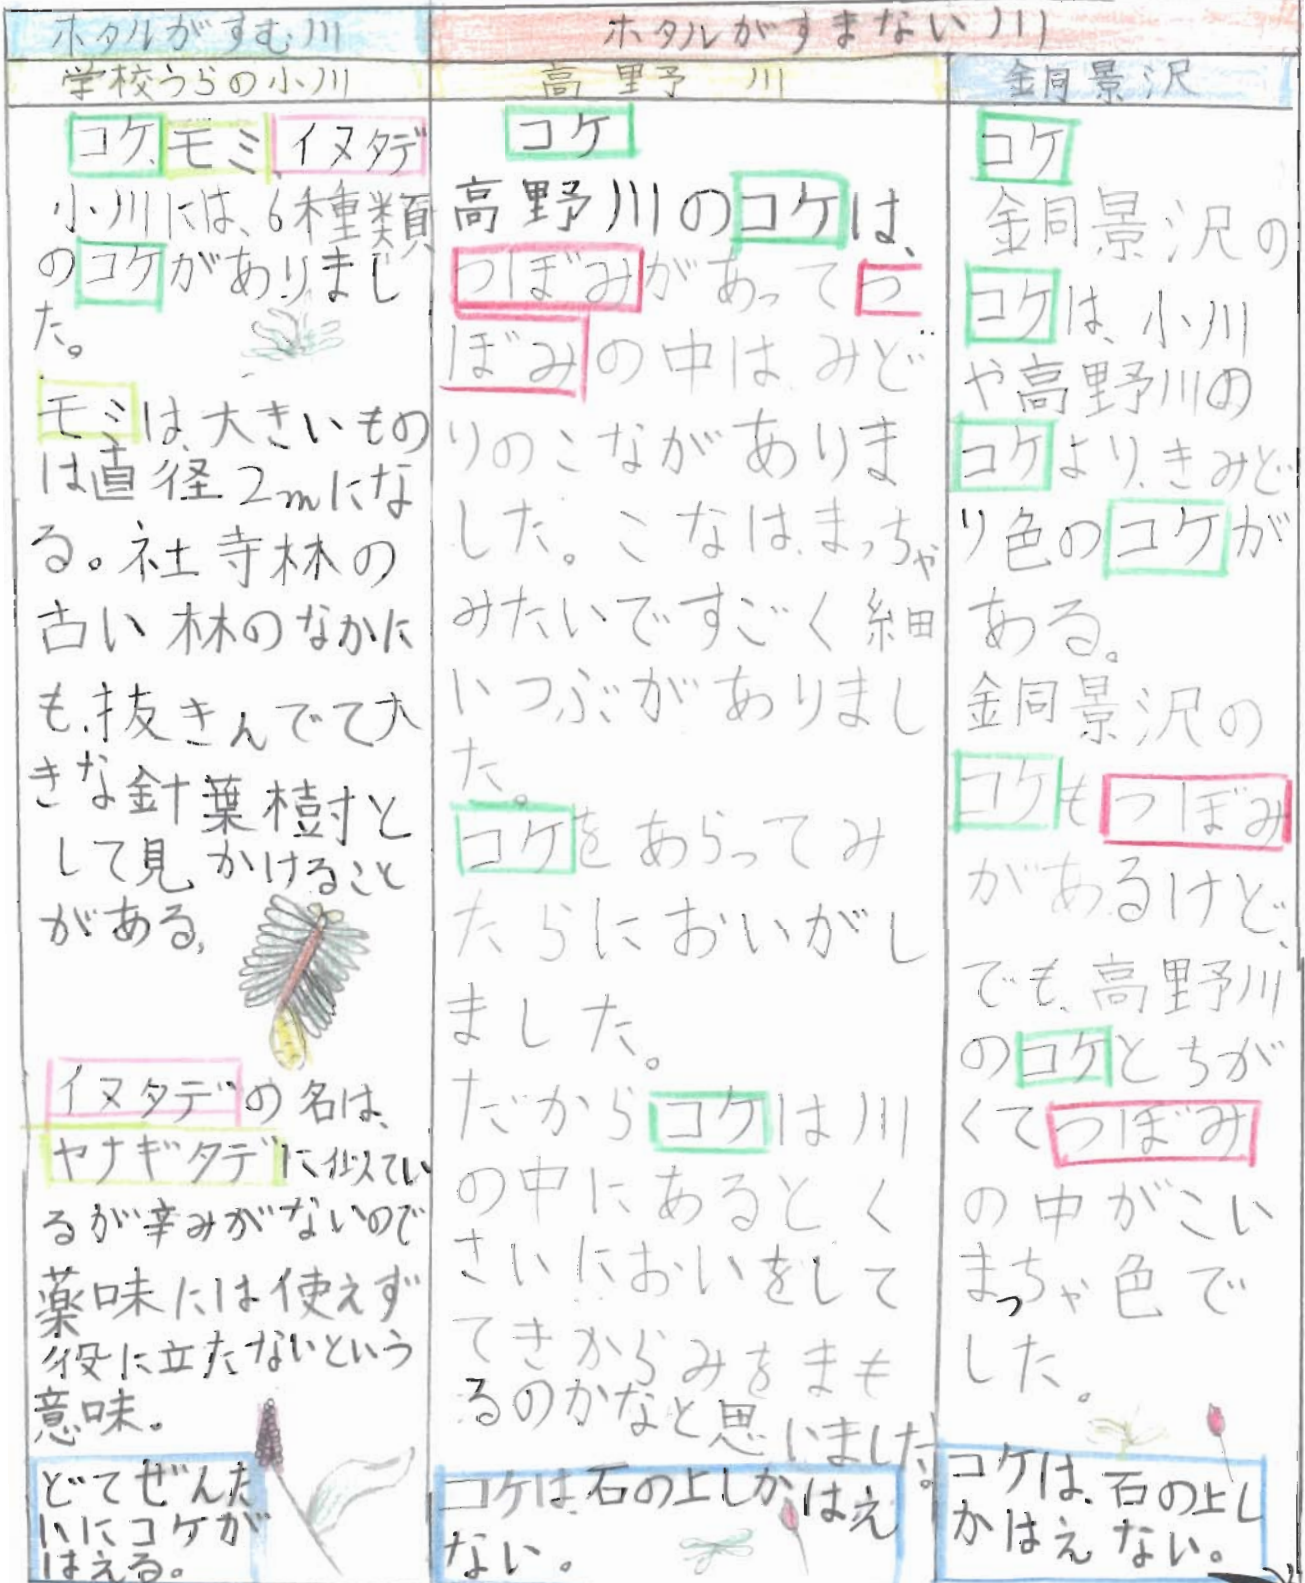 ホタルがすむ川
ホタルがすまない川
学校うらの小川
コケ、モミ、イヌタデ
小川には、6種類
のコケがありまし
た。
モミは、大きいもの
は直径2mにな
る。社寺林の
古い林のなかに
も、抜きんでて大
きな針葉樹と
して見かけること
がある。
イヌタデの名は、
ヤナギタデに似てい
るが辛みがないので
薬味には使えず
役に立たないという
意味。
どてぜんた
いにコケが
はえる。
高野川
コケ
高野川のコケは、
つぼみがあってつ
ぼみの中は、みど
りのこながありま
した。こなは、まっちゃ
みたいですごく細
いつぶがありまし
た。
コケをあらってみ
たらにおいがし
ました。
だからコケは川
の中にあるとく
さいにおいをして
てきからみをまも
るのかなと思いました。
コケは、石の上しかはえ
ない。
銅景沢
コケ
銅景沢の
コケは、小川
や高野川の
コケより、きみど
り色のコケが
ある。
銅景沢の
コケもつぼみ
があるけど、
でも、高野川
のコケとちが
くてつぼみ
の中がこい
まっちゃ色で
した。
コケは、石の上し
かはえない。